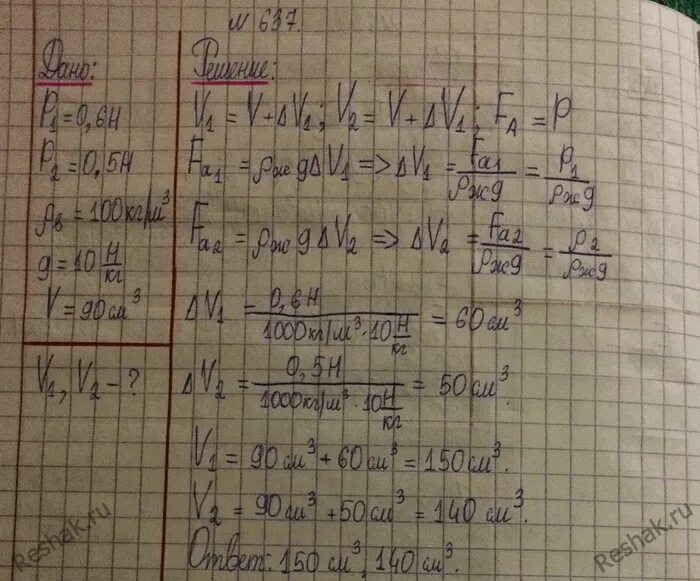 № 637.
Дано:
P₁=0,6Н
P₂=0,5Н
ρв=100кг/м³
g=10 Н/кг
V=90см³
V₁, V₂-?
Решение:
V₁ = V+ΔV₁; V₂= V+ΔV₁; F_A = P
Fа₁ = ρж gΔV₁ => ΔV₁ = Fа₁/ρжg = P₁/ρжg
Fа₂ = ρж g ΔV₂ => ΔV₂ = Fа₂/ρжg = P₂/ρжg
ΔV₁ = 0,6Н/1000кг/м³·10Н/кг = 60см³
ΔV₂ = 0,5Н/1000кг/м³·10Н/кг = 50см³.
V₁ = 90см³+60см³=150см³.
V₂ = 90см³+50см³=140см³.
Ответ: 150см³, 140см³.
Reshak.ru
Reshak.ru